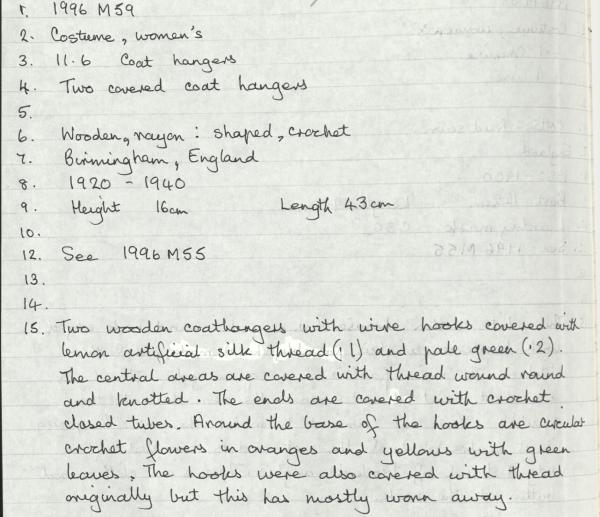 1. 1996 M59
2. Costume, women's
3. 11.6 Coat hangers
4. Two covered coat hangers
5.
6. Wooden, rayon : shaped, crochet
7. Birmingham, England
8. 1920 - 1940
9. Height 16cm Length 43cm
10.
12. See 1996 M55
13.
14.
15. Two wooden coathangers with wire hooks covered with
lemon artificial silk thread (:1) and pale green (:2).
The central areas are covered with thread wound round
and knotted. The ends are covered with crochet
closed tubes. Around the base of the hooks are circular
crochet flowers in oranges and yellows with green
leaves. The hooks were also covered with thread
originally but this has mostly worn away.